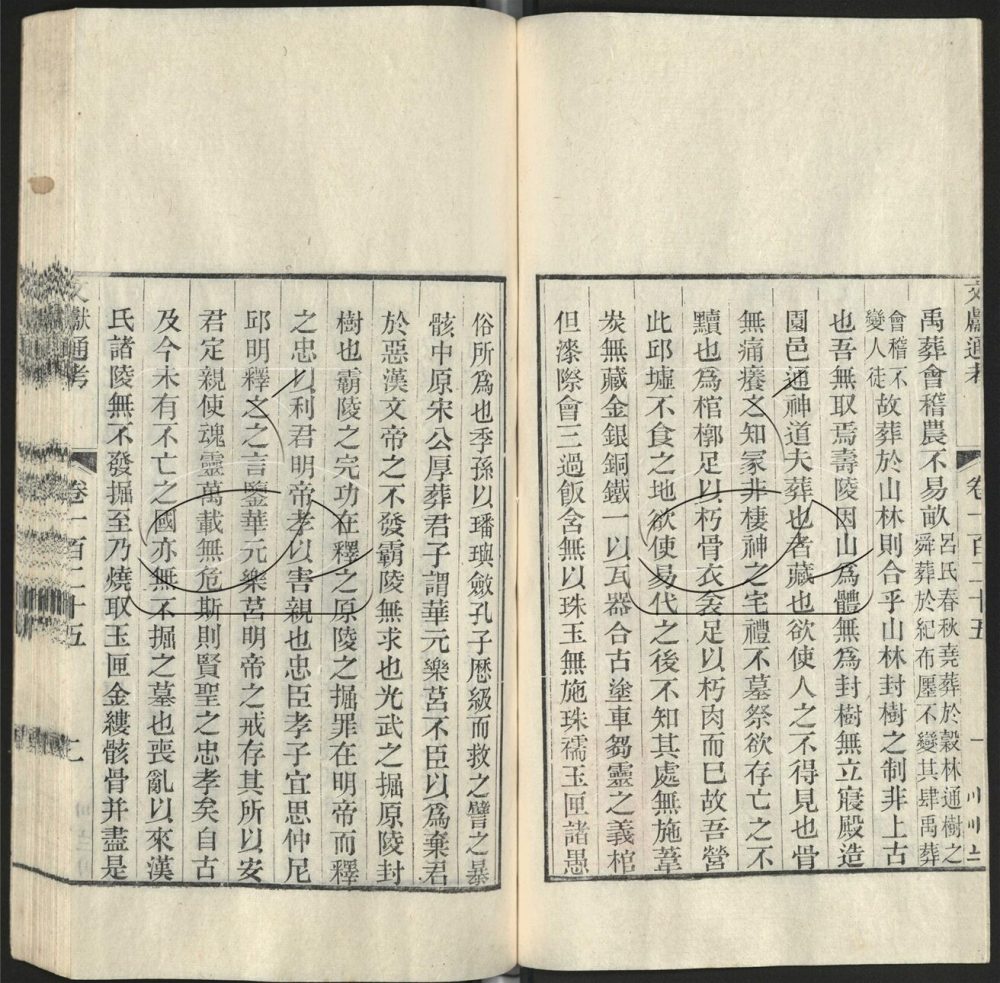 文獻通考
卷一百二十五
禹葬會稽農不易畝
呂氏春秋堯葬於穀林通樹之
舜葬於紀布廛不變其肆禹葬
會稽不
變人徒
故葬於山林則合乎山林封樹之制非上古
也吾無取焉壽陵因山爲體無爲封樹無立寢殿造
園邑通神道夫葬也者藏也欲使人之不得見也骨
無痛癢之知冢非棲神之宅禮不墓祭欲存亡之不
黷也爲棺槨足以朽骨衣衾足以朽肉而已故吾營
此邱墟不食之地欲使易代之後不知其處無施葦
炭無藏金銀銅鐵一以瓦器合古塗車芻靈之義棺
但漆際會三過飯含無以珠玉無施珠襦玉匣諸愚
俗所爲也季孫以璠璵斂孔子歷級而救之譬之暴
骸中原宋公厚葬君子謂華元樂莒不臣以爲棄君
於惡漢文帝之不發霸陵無求也光武之掘原陵封
樹也霸陵之完功在釋之原陵之掘罪在明帝而釋
之忠以利君明帝孝以害親也忠臣孝子宜思仲尼
邱明釋之之言鑒華元樂莒明帝之戒存其所以安
君定親使魂靈萬載無危斯則賢聖之忠孝矣自古
及今未有不亡之國亦無不掘之墓也喪亂以來漢
氏諸陵無不發掘至乃燒取玉匣金縷骸骨并盡是
文獻通考
卷一百二十五